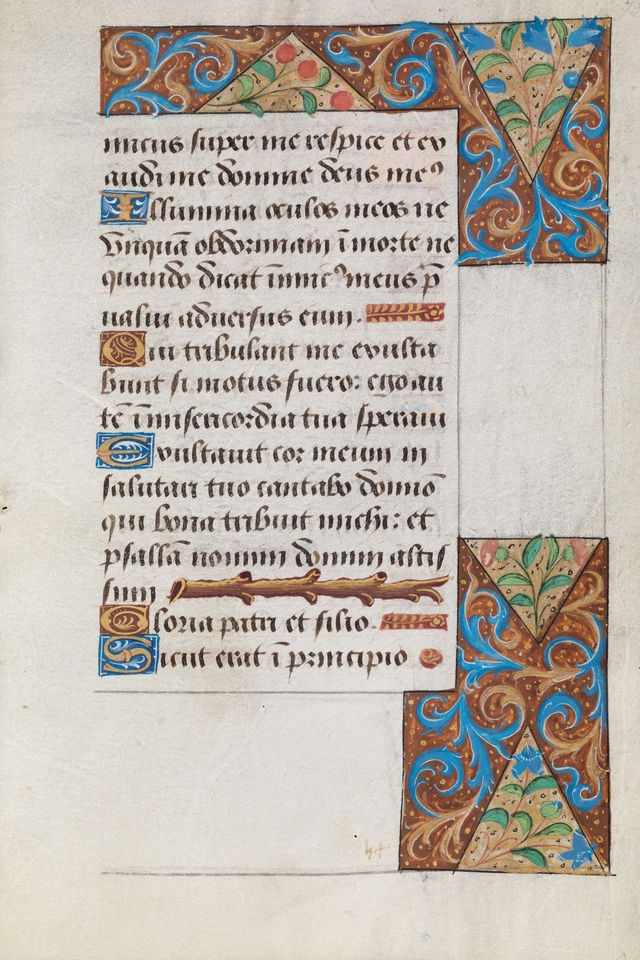 micus super me respice et ex
audi me domine deus meꝰ
Illumina oculos meos ne
vnquā obdormiam ī morte ne
quando dicat inimicꝰ meus p̄
ualui aduersus eum.
Qui tribulant me exulta
bunt si motus fuero: ego au
tē ī misericordia tua speraui
Exultauit cor meum in
salutari tuo cantabo domīo
qui bona tribuit michi: et
psallā nomini domini altis
simi
Gloria patri et filio.
Sicut erat ī principio